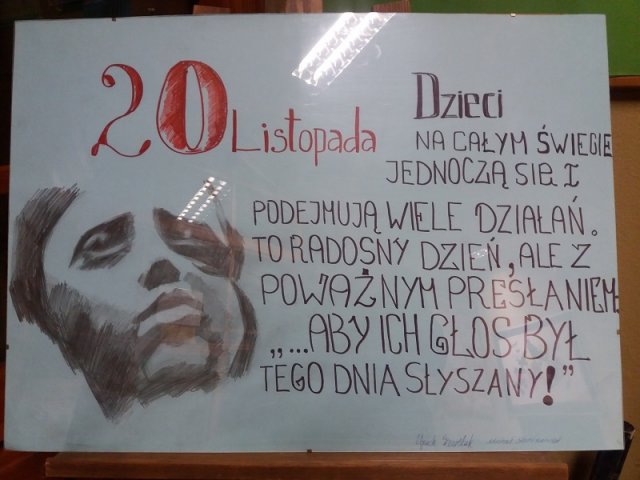 20 Listopada
Dzieci
NA CAŁYM ŚWIECIE
JEDNOCZĄ SIĘ I
PODEJMUJĄ WIELE DZIAŁAŃ.
TO RADOSNY DZIEŃ, ALE Z
POWAŻNYM PRESŁANIEM
„...ABY ICH GŁOS BYŁ
TEGO DNIA SŁYSZANY!”